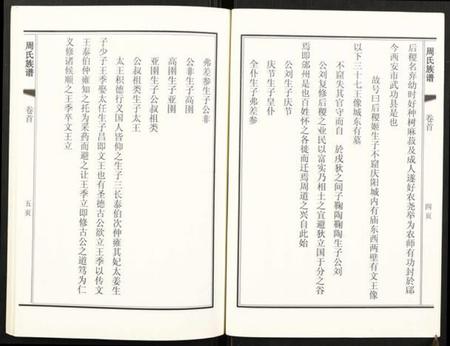 周氏族谱
卷首
四頁
后稷名弃幼时好种树麻菽及成人遂好农尧举为农师有功封於邰
今西安市武功县是也
故号曰后稷姬生子不窋庆阳城内有庙东西两壁有文王像
以下三十七王像城东有墓
不窋失其官守而自 於戎狄之间子鞠陶鞠陶生子公刘
公刘复修后稷之业民以富实乃相土之宜避狄立国于分之谷
焉即邠州是也百姓怀之各徙而迁焉周道之兴自此始
公刘生子庆节
庆节生子皇仆
全仆生子弗差参
弗差参生子公非
公非生子高圉
高圉生子亚圉
亚圉生子公叔祖类
公叔祖类生子太王
太王积德行义国人皆仰之生子三长泰伯次仲雍其妃太姜生
子少子王季娶太任生子昌即文王也有圣德古公欲立王季以传文
王泰伯仲雍知之托为采药而避之让王季立即修古公之道笃为仁
义修诸候顺之王季卒文王立
周氏族谱
卷首
五頁